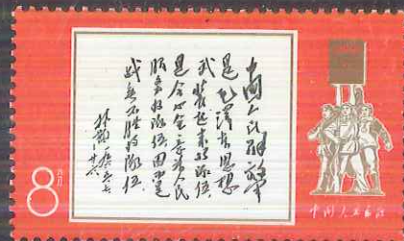 中国人民解放军
是毛泽东思想
武装起来的队伍,
是全心全意为人民
服务的队伍,因而是
战无不胜的队伍.
林彪
8分
中国人民邮政